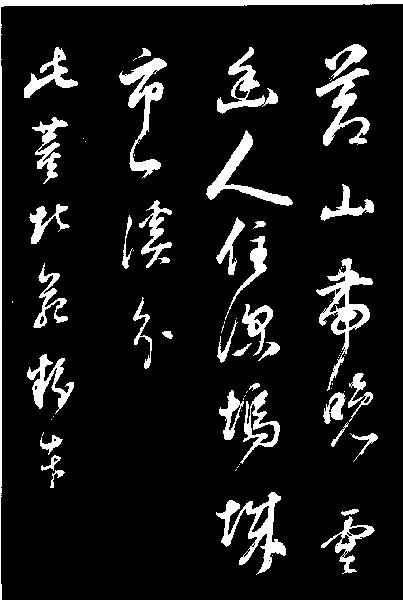 蒼山帶晚雲
幽人住深塢城
市一溪分
此蓋北苑粉本